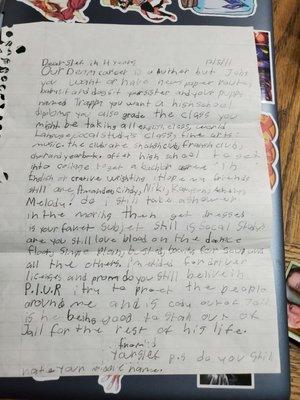 Dear Shet in 4 years 12/5/11
Our Dream career is a author but Jobs
you want or have news paper route,
babysit and dogsit your sister and your puppy
named Trapp. you want a high school
diploma yay, also grade the class you
might be taking all english class, world
Language, social studys class, fine arts,
music. the club are club, french club,
after high school to get
into collage I get a bachlor In
English or creive wrighting I hope friends
still are, Amanda, Cindy, Niky,
Melody. do i still take a shower
in the moring then get dressed
is your favret subjet still is Social Studys
are you still love blood on the dance
floor, simple plan,
all the others. I'm exiding for driver
licenes and prom do you still belive in
P.L.U.R i try to proet the people
around me and is out of Jail
is he being good to stay out of
Jail for the rest of his life.
from:
Yourself p.s do you still
hate your middle name.